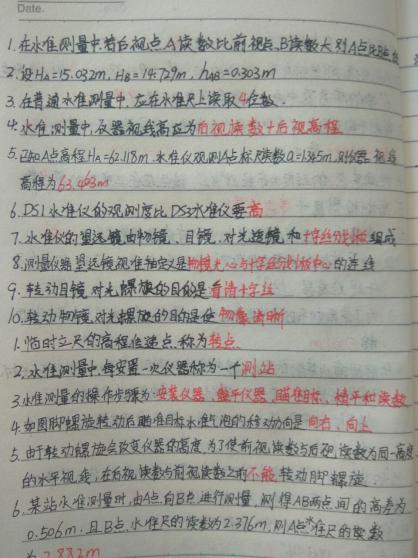 Date.
1. 在水准测量中,若后视点A读数比前视点B读数大,则A点比B点低
2. 设HA=15.032m, HB=14.729m, hAB=0.303m
3. 在普通水准测量中,应在水准尺上读取4位数.
4. 水准测量中,仪器视线高应为后视读数+后视高程
5. 已知A点高程HA=62.118m,水准仪观测A点标尺读数a=1345m,则仪器视线
高程为63.463m
6. DS1水准仪的观测度比DS3水准仪要高
7. 水准仪的望远镜由物镜、目镜、对光透镜和十字丝分划板组成
8. 测量仪器望远镜视准轴定义是物镜光心与十字丝分划板中心的连线
9. 转动目镜对光螺旋的目的是看清十字丝
10. 转动物镜对光螺旋的目的是使物像清晰
1. 临时立尺的高程传递点,称为转点
2. 水准测量中,每安置一次仪器称为一个测站
3. 水准测量的操作步骤为:安装仪器、整平仪器、瞄准目标、精平和读数
4. 如图脚螺旋转动后瞄准目标水准气泡的移动方向是向右、向上
5. 由于转动螺旋会改变仪器的高度,为了使前视读数与后视读数为同一高度
的水平视线,在后视读数与前视读数之前不能转动脚螺旋
6. 某站水准测量时,由A点向B点进行测量,测得AB两点间的高差为
0.506m,且B点水准尺的读数为2.376m,则A点水准尺的读数
为2.882m